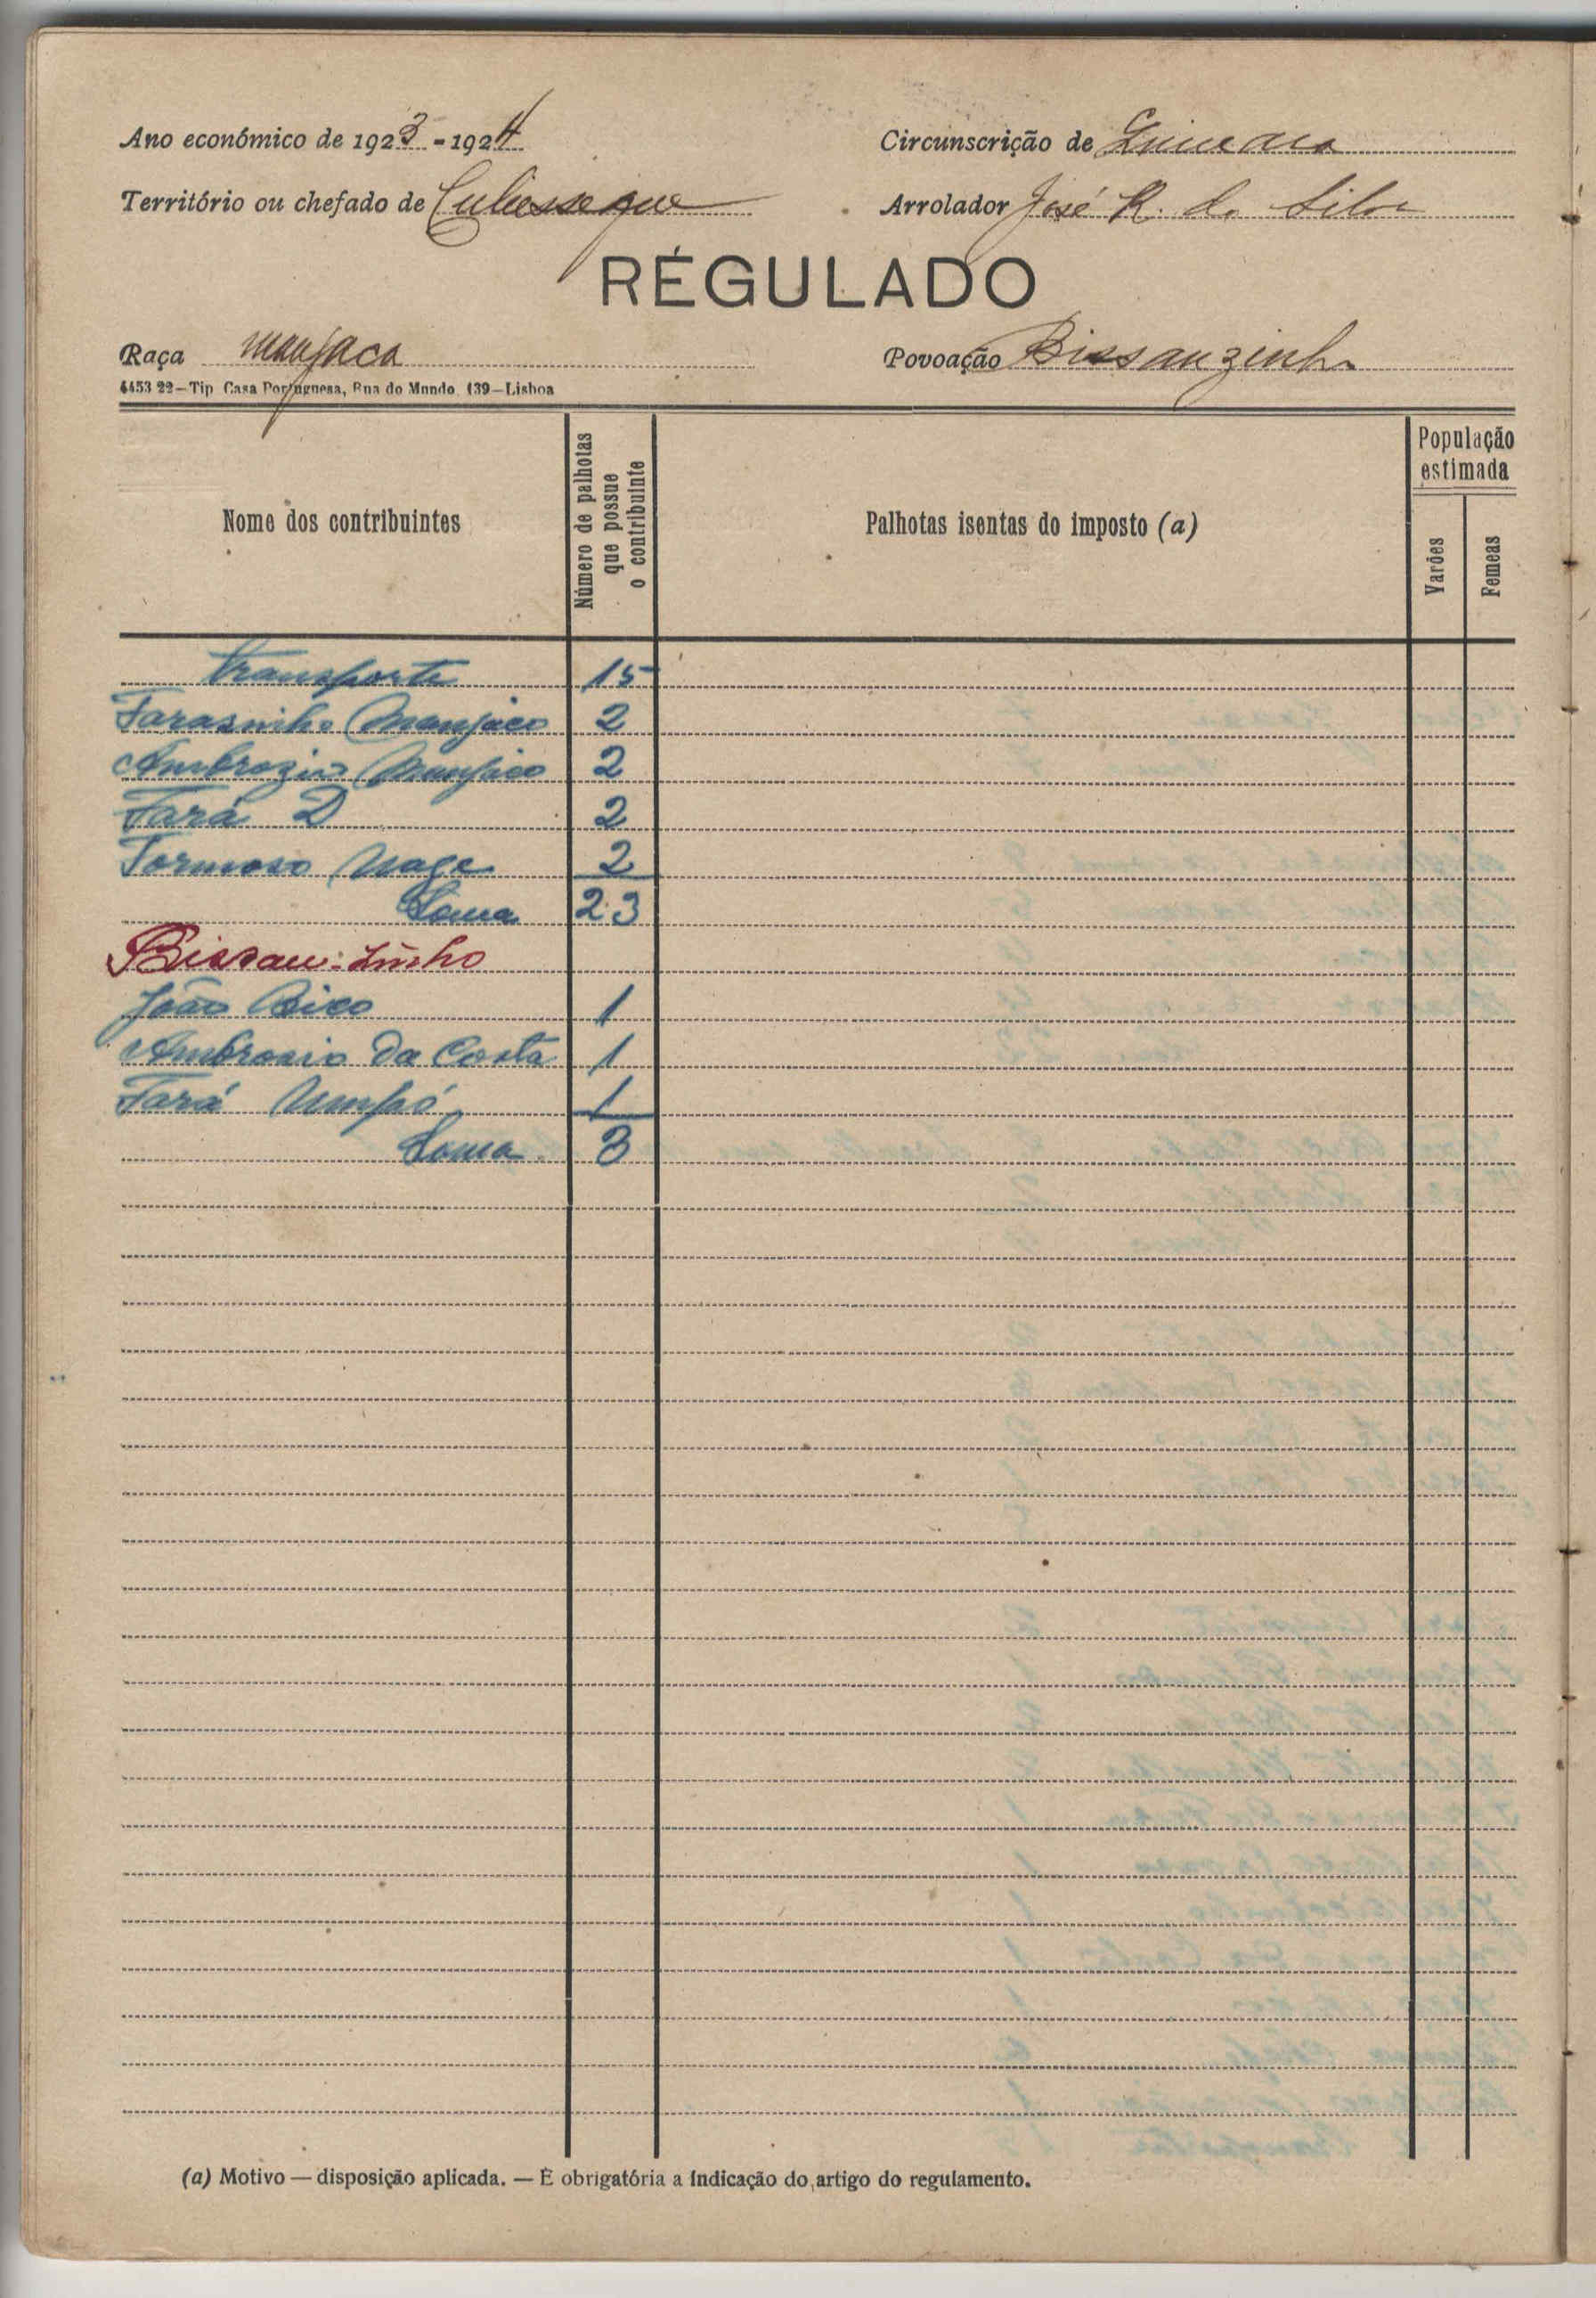 Ano económico de 1923-1924
Circunscrição de
Território ou chefado de
Arrolador José R. da Silva
RÉGULADO
Raça manjaca
Povoação Bissauzinho
4453 22—Tip Casa Portuguesa, Rua do Mundo, 139—Lisboa
Nome dos contribuintes
Número de palhotas que possue o contribuinte
Palhotas isentas do imposto (a)
População estimada
Varões
Femeas
Transporte 15
Farasinho Manjaco 2
Ambrozio Manjaco 2
Fará D 2
Formoso Nage 2
Soma 23
Bissau-Zinho
João Bico 1
Ambrosio Da Costa 1
Fará Umpó 1
Soma 3
(a) Motivo — disposição aplicada. — É obrigatória a indicação do artigo do regulamento.